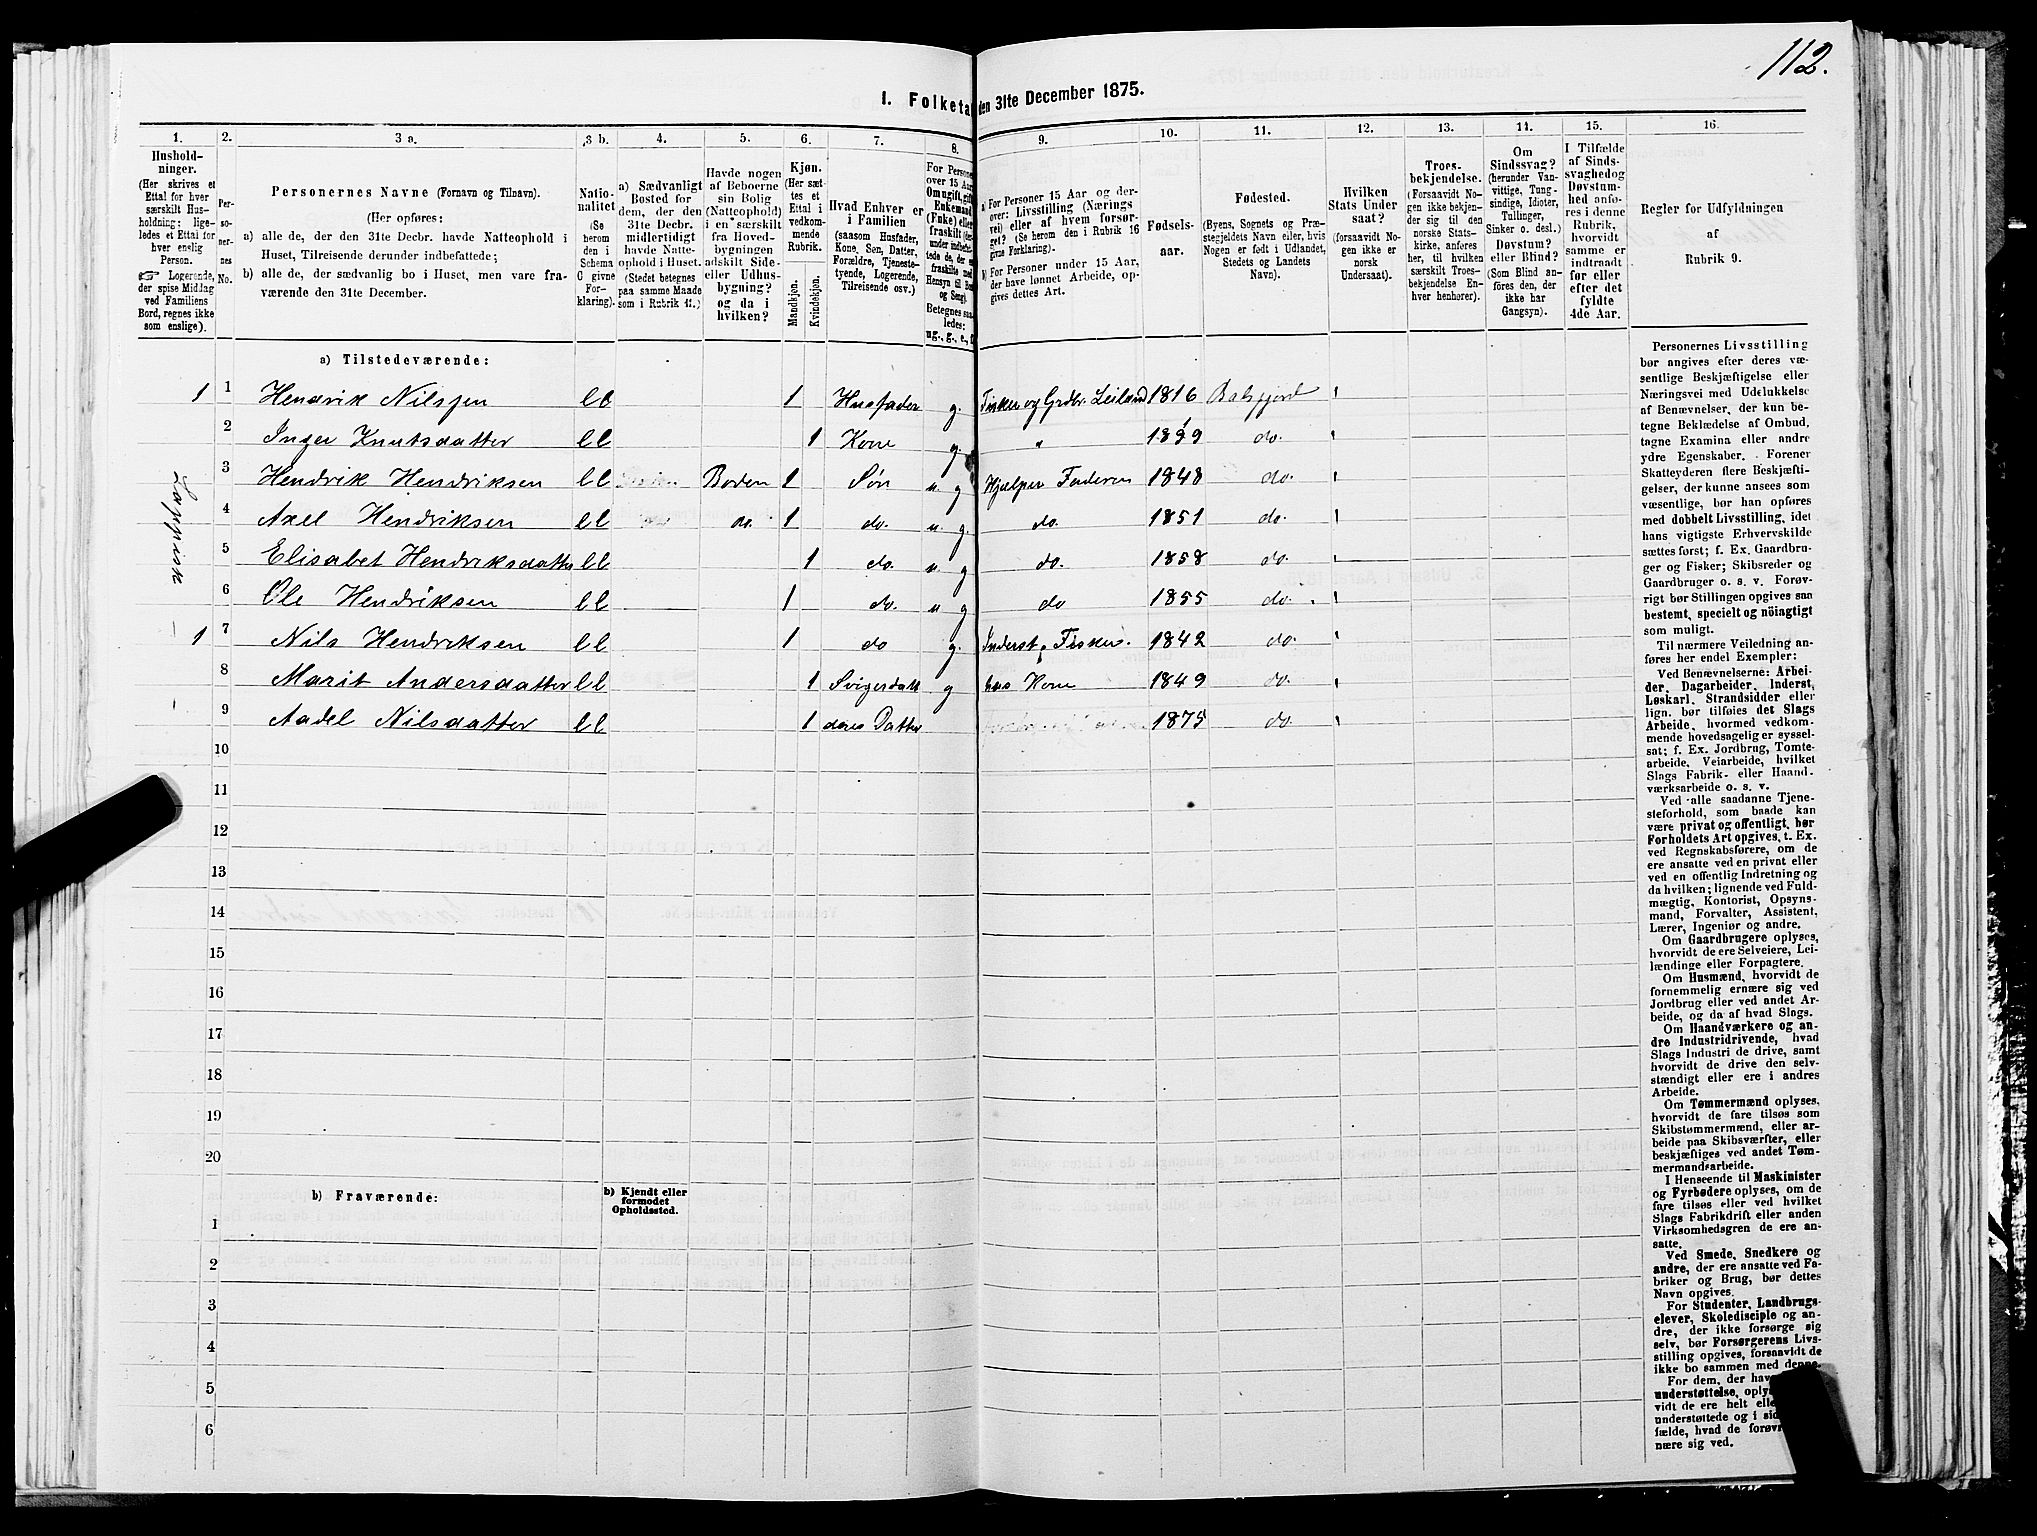 112.
I. Folketa
den 31te December 1875.
1. 2. 3 a. 3 b. 4. 5. 6. 7. 8. 9. 10. 11. 12. 13. 14. 15. 16.
Hushold-
ninger.
(Her skrives et
Ettal for hver
særskilt Hus-
holdning; lige-
ledes et Ettal for
hver enslig
Person.
☞ Logerende,
der spise Middag
ved Familiens
Bord, regnes ikke
som enslige).
Per-
so-
ner-
nes
No.
Personernes Navne (Fornavn og Tilnavn).
(Her opføres:
a) alle de, der den 31te Decbr. havde Natteophold i
Huset, Tilreisende derunder indbefattede;
b) alle de, der sædvanlig bo i Huset, men vare fra-
værende den 31te December.
Natio-
nalitet
(Se
herom
den i
Schema
C givne
For-
klaring).
a) Sædvanligt
Bosted for
dem, der den
31te Decbr.
midlertidigt
havde Natte-
ophold i Huset.
(Stedet betegnes
paa samme Maade
som i Rubrik 11.)
Havde nogen
af Beboerne
sin Bolig
(Natteophold)
i en særskilt
fra Hoved-
bygningen
adskilt Side-
eller Udhus-
bygning?
og da i
hvilken?
Kjøn.
(Her sæt-
tes et
Ettal i
vedkom-
mende
Rubrik.
Mandkjøn.
Kvindekjøn.
Hvad Enhver er
i Familien
(saasom Husfader,
Kone, Søn, Datter,
Forældre, Tjeneste-
tyende, Logerende,
Tilreisende osv.)
For Persone
over 15 Aar
Om ugift, gift
Enkemand
(Enke) eller
fraskilt (der-
under indbefat-
tede de, der er
fraskilte med
Hensyn til Bo
og Seng).
Betegnes saa-
ledes:
ug., g., e., f.
a) For Personer 15 Aar og der-
over: Livsstilling (Nærings
vei) eller af hvem forsør-
get? (Se herom den i Rubrik 16
givne Forklaring).
b) For Personer under 15 Aar,
der have lønnet Arbeide, op-
gives dettes Art.
Fødsels-
aar.
Fødested.
(Byens, Sognets og Præ-
stegjeldets Navn eller, hvis
Nogen er født i Udlandet,
Stedets og Landets
Navn).
Hvilken
Stats Under
saat?
(forsaavidt No-
gen ikke er
norsk
Undersaat).
Troes-
bekjendelse.
(Forsaavidt No-
gen ikke bekjen-
der sig til den
norske Stats-
kirke, anføres
her, til hvilken
særskilt Troes-
bekjendelse En-
hver henhører).
Om
Sindssvag?
(herunder Van-
vittige, Tung-
sindige, Idioter,
Tullinger,
Sinker o. desl.)
Døvstum?
eller Blind?
(Som Blind an-
føres den, der
ikke har
Gangsyn).
I Tilfælde
af Sinds-
svaghedog
Døvstum-
hed anfø-
res i denne
Rubrik,
hvorvidt
samme er
indtraadt
før eller
efter det
fyldte
4de Aar.
Regler for Udfyldningen
af
Rubrik 9.
a) Tilstedeværende:
1 1 Hendrik Nilssen l l 1 Husfader g. Fisker og Grdbr. Leilænd 1816 Balsfjord
2 Inger Knutsdatter l l 1 Kone g. " do.
3 Hendrik Hendriksen l l Boden 1 Søn u. g Hjælper Faderen 1848 do.
4 Axel Hendriksen l l do. 1 do. u. g. do. 1851 do.
5 Elisabet Hendriksdatter l l 1 do. u. g do. 1858 do.
6 Ole Hendriksen l l 1 do. u g do 1855 do.
1 7 Nils Hendriksen l l 1 do g. Inderst, Fisker. 1842 do.
8 Marit Andersdatter l l 1 Svigerdatt g hans Kone 1849 do.
9 Aadel Nilsdatter l l 1 deres Datter 1875 do.
10
11
12
13
14
15
16
17
18
19
20
b) Fraværende:
b) Kjendt eller
formodet
Opholdssted.
1
2
3
4
5
6
Personernes Livsstilling
bør angives efter deres væ-
sentlige Beskjæftigelse eller
Næringsvei med Udelukkelse
af Benævnelser, der kun be-
tegne Bekledelse af Ombud,
tagne Examina eller andre
ydre Egenskaber. Forener
Skatteyderen flere Beskjæfti-
gelser, der kunne ansees som
væsentlige, bør han opføres
med dobbelt Livsstilling, idet
hans vigtigste Erhvervskilde
sættes først; f. Ex. Gaardbru-
ger og Fisker; Skibsreder og
Gaardbruger o. s. v. Forøv-
rigt bør Stillingen opgives saa
bestemt, specielt og nöiagtigt
som muligt.
Til nærmere Veiledning an-
føres her endel Exempler:
Ved Benævnelserne: Arbei-
der, Dagarbeider, Inderst,
Løskarl, Strandsidder eller
lign. bør tilføies det Slags
Arbeide, hvormed vedkom-
mende hovedsagelig er syssel-
sat; f. Ex. Jordbrug, Tomte-
arbeide, Veiarbeide, hvilket
Slags Fabrik- eller Haand-
værksarbeide o. s. v.
Ved alle saadanne Tjene-
steforhold, som baade kan
være privat og offentligt, bør
Forholdets Art opgives, t. Ex.
ved Regnskabsførere, om de
ere ansatte ved en privat eller
ved en offentlig Indretning og
da hvilken; lignende ved Fuld-
mægtig, Kontorist, Opsyns-
mand, Forvalter, Assistent,
Lærer, Ingeniør og andre.
Om Gaardbrugere oplyses,
hvorvidt de ere Selveiere, Lei-
lændinge eller Forpagtere.
Om Husmænd, hvorvidt de
fornemmelig ernære sig ved
Jordbrug eller ved andet Ar-
beide, og da af hvad Slags.
Om Haandværkere og an-
dre Industridrivende, hvad
Slags Industri de drive, samt
hvorvidt de drive den selv-
stændigt eller ere i andres
Arbeide.
Om Tømmermænd oplyses,
hvorvidt de fare tilsøs som
Skibstømmermænd, eller ar-
beide paa Skibsværfter, eller
beskjæftiges ved andet Tøm-
mermandsarbeide.
I Henseende til Maskinister
og Fyrbødere oplyses, om de
fare tilsøs eller ved hvilket
Slags Fabrikdrift eller anden
Virksomhedsgren de ere an-
satte.
Ved Smede, Snedkere og
andre, der ere ansatte ved Fa-
briker og Brug, bør dettes
Navn opgives.
For Studenter, Landbrugs-
elever, Skoledisciple og an-
dre, der ikke forsørge sig
selv, bør Forsørgerens Livs-
stilling opgives, forsaavidt de
ikke bo sammen med denne.
For dem, der hav
understøttelse, oply
vidt de ere helt elle
understøttede og i
fælde, hvad de forøv
nære sig ved.